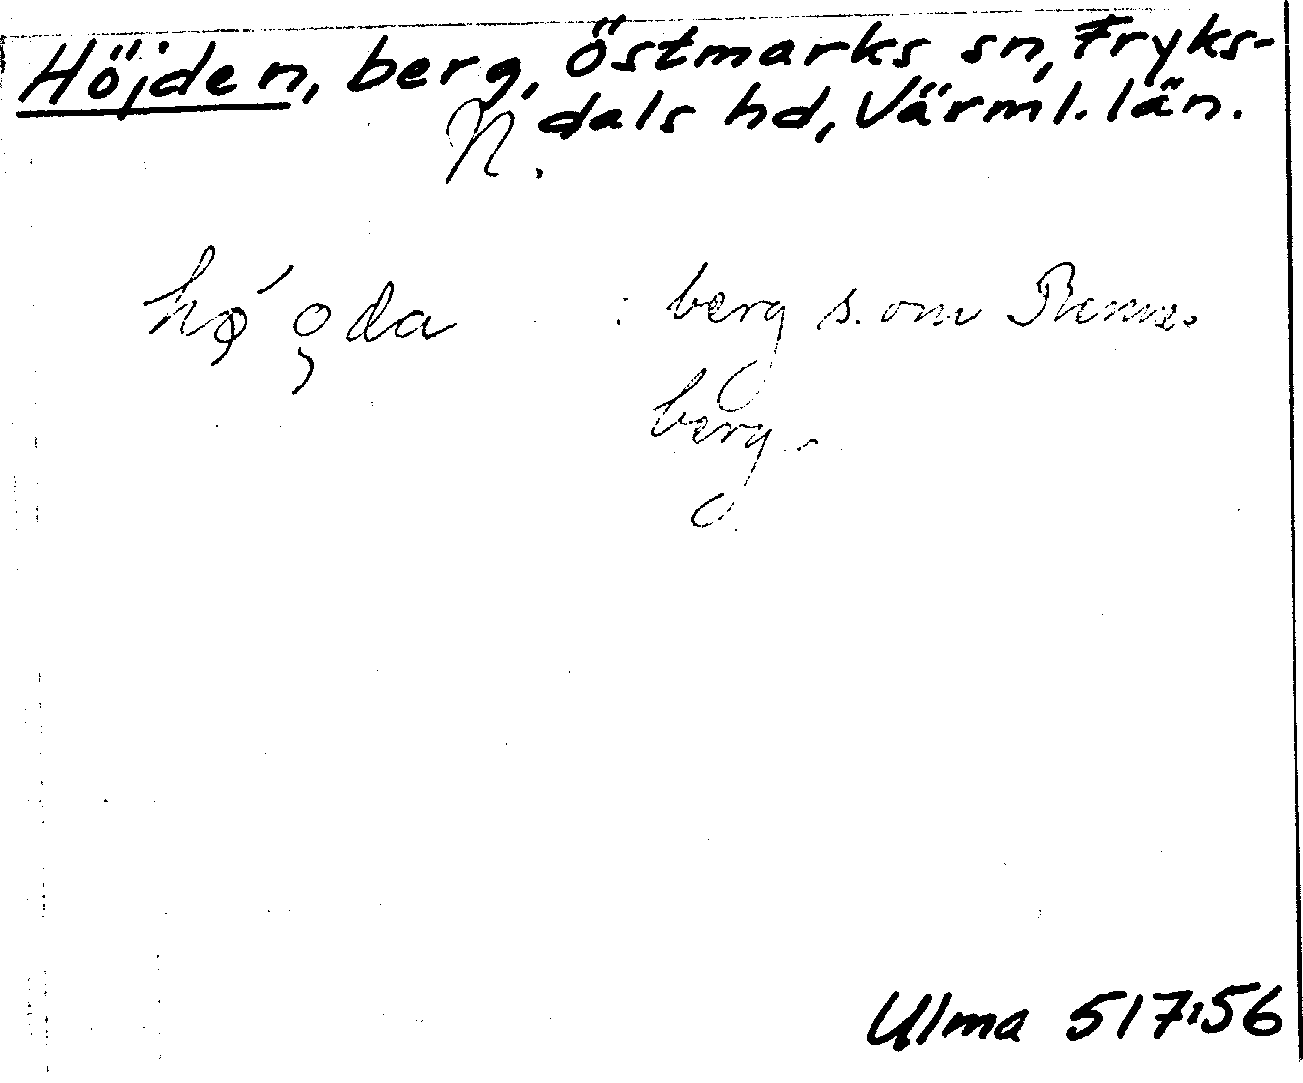 Höjden, berg, Östmarks sn, Fryks-
N. dals hd, Värml. län.
hǿgda : berg s. om Runne-
berg.
Ulma 517:56